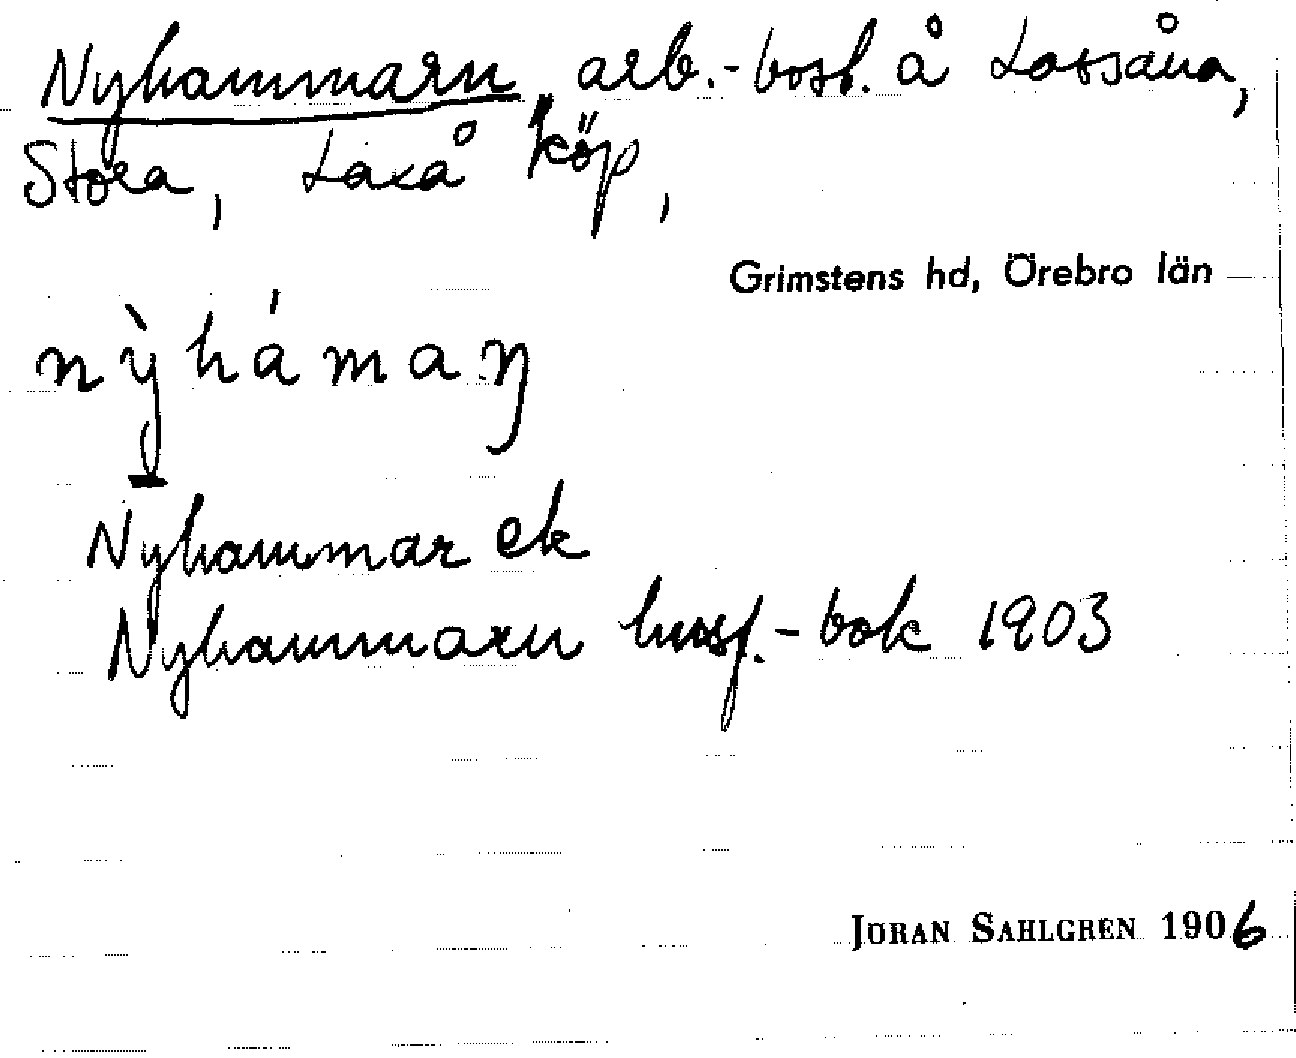 Nyhammarn, arb.-bost. å Lassåna,
Stora, Laxå köp,
Grimstens hd, Örebro län
nỳhámaŋ
Nyhammar ek
Nyhammarn husf.-bok 1903
JÖRAN SAHLGREN 1906